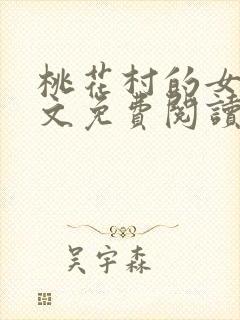 桃花村的女
文免費閱讀
吳宇森